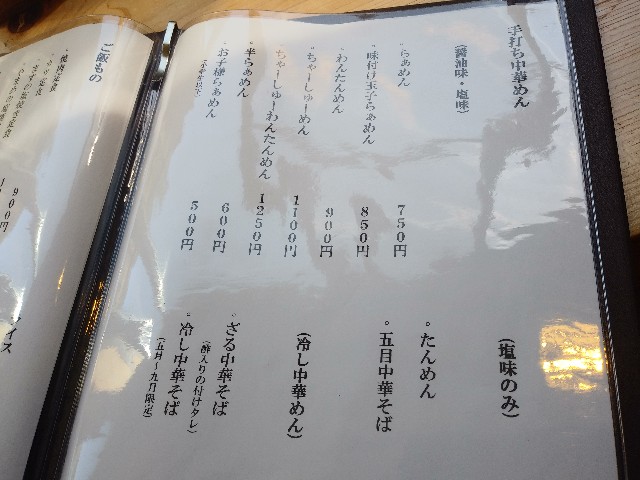 手打ち中華めん
(醤油味・塩味)
°らぁめん 750円
°味付け玉子らぁめん 850円
°わんたんめん 900円
°ちゃーしゅーめん 1100円
°ちゃーしゅーわんたんめん 1250円
°半らぁめん 600円
°お子様らぁめん 500円
(塩味のみ)
°たんめん
°五目中華そば
(冷し中華めん)
°ざる中華そば
(酢入りの付けタレ)
°冷し中華そば
(五月〜九月限定)
ご飯もの
900円
イス